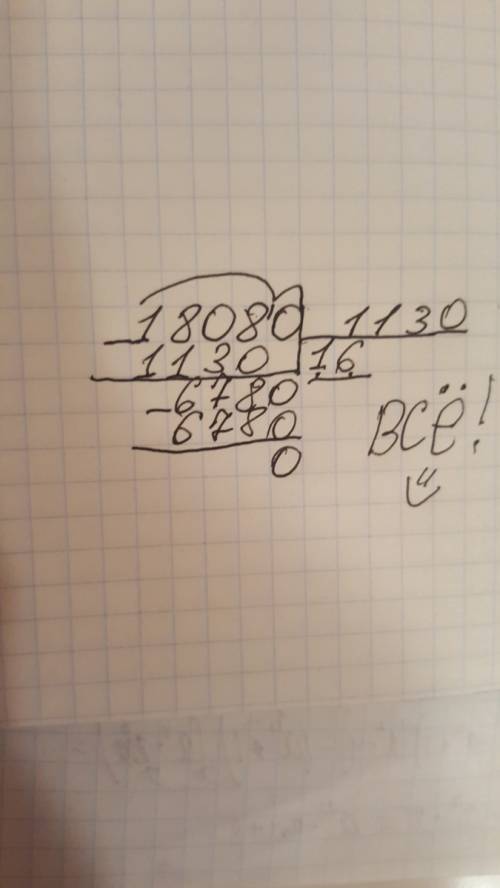 18080 1130
1130 16
-6780
6780
0
ВСЁ!